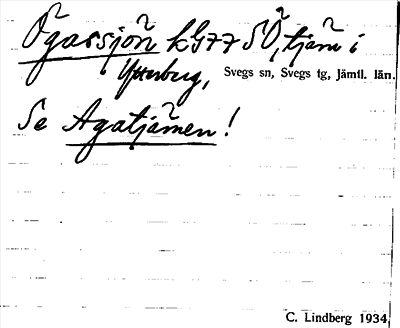 Õgassjön kG77 SÖ, tjärn i
Ytterberg, Svegs sn, Svegs tg, Jämtl. län.
Se Agatjärnen!
C. Lindberg 1934